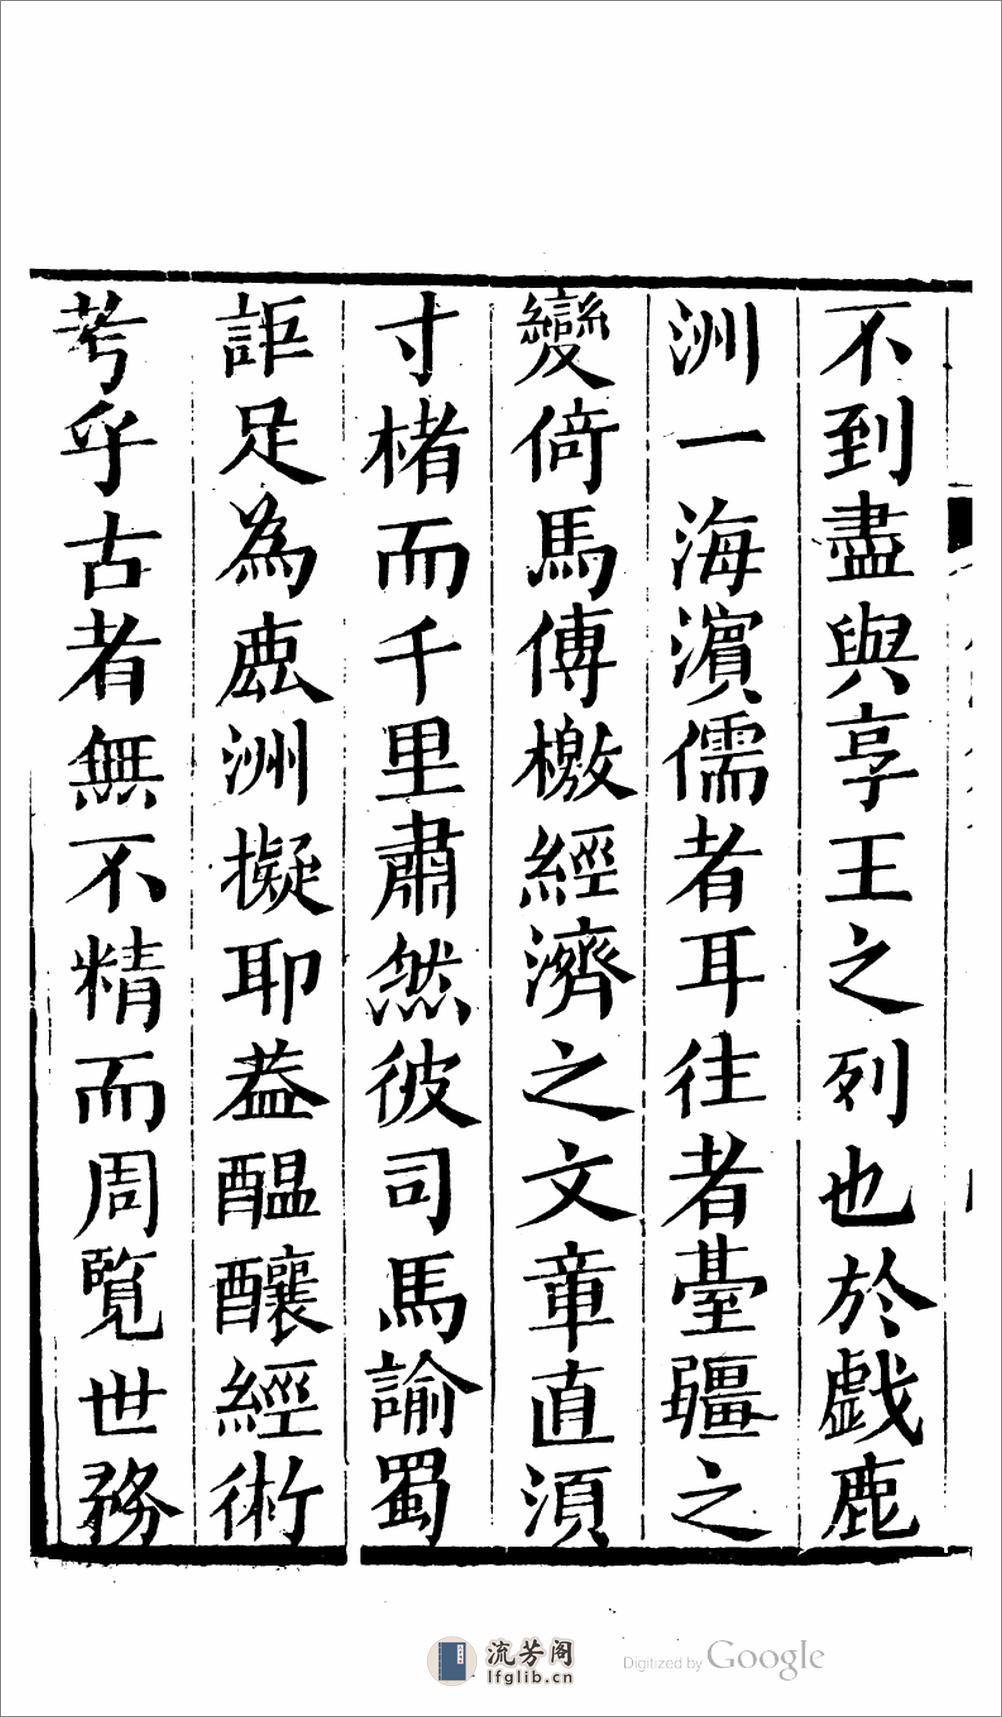 不到盡與享王之列也於戲鹿
洲一海濵儒者耳往者臺疆之
變倚馬傳檄經濟之文章直湏
寸楮而千里肅然彼司馬諭蜀
詎足為鹿洲擬耶葢醖釀經術
考乎古者無不精而周覽世務
流芳阁
lfglib.cn
Digitized by Google